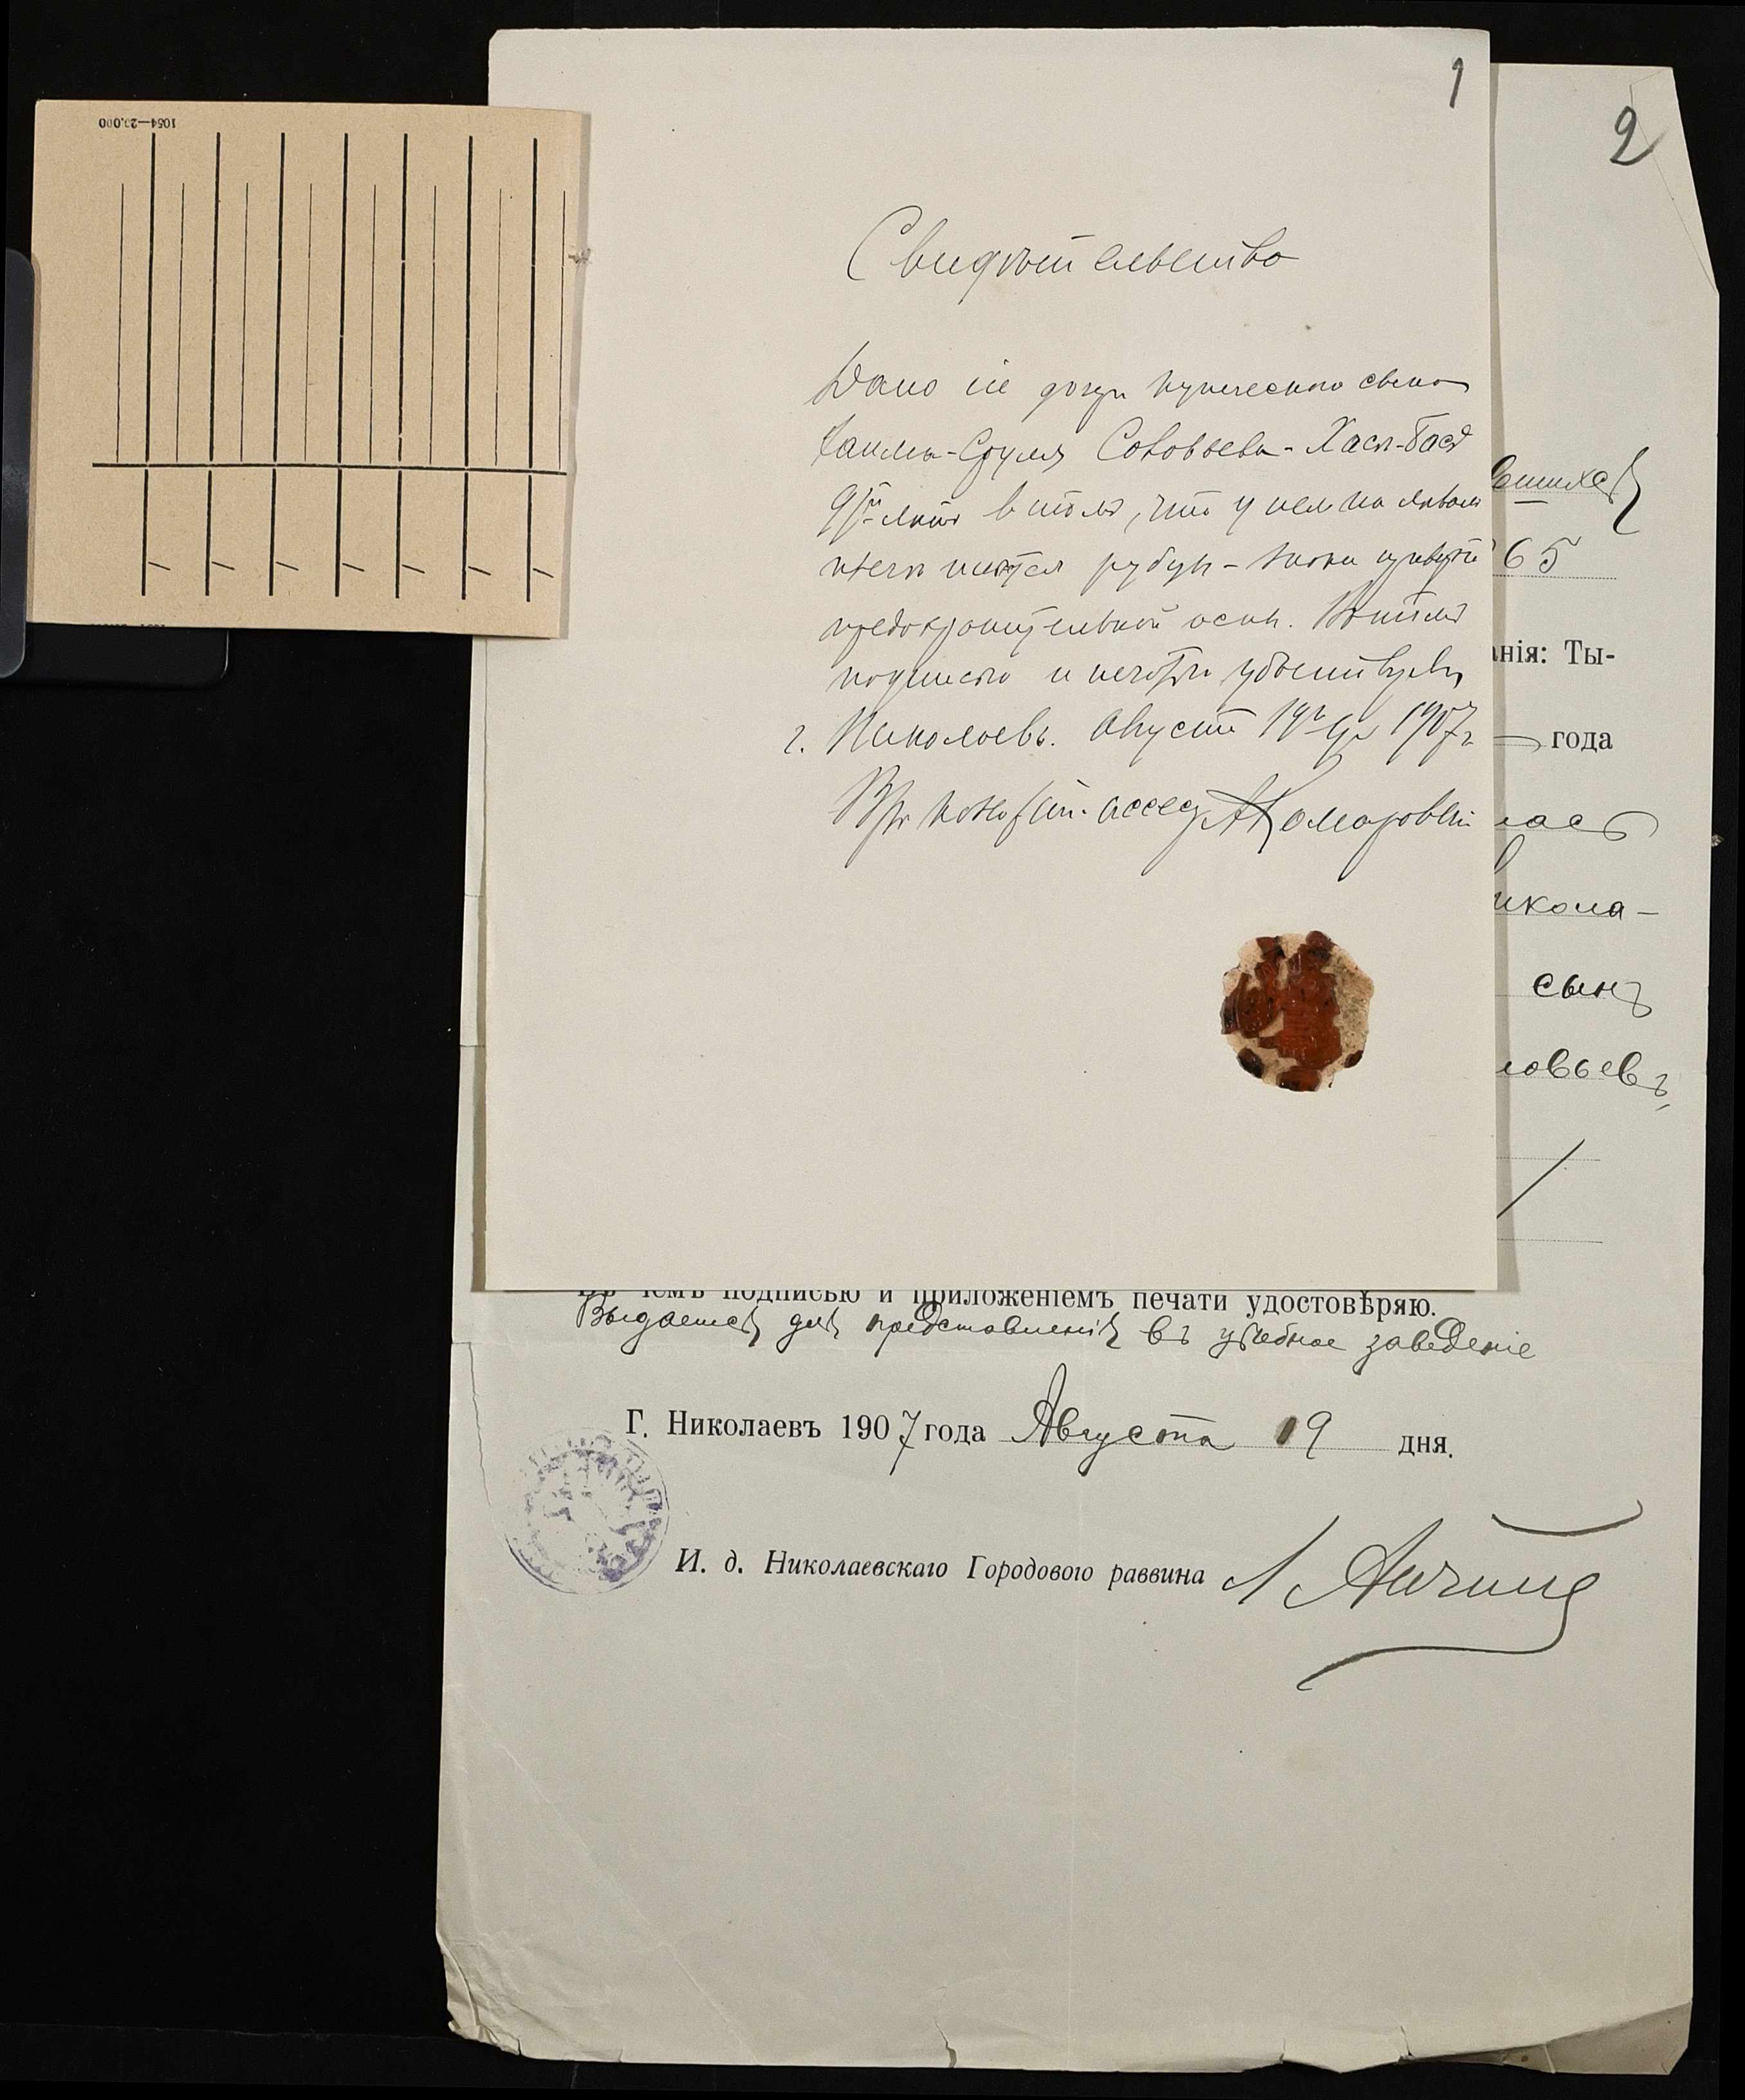 1054—20.000
1
Свидѣтельство
Дано сіе дочери купеческаго сына
Хаима-Сруля Соловьева - Хасѣ-Басѣ
9ти лѣтъ в томъ, что у нея на лѣвомъ
плечѣ имѣются рубцы - знаки привитой
предохранительной оспы. В чемъ
подписью и печатью удостовѣряю
г. Николаевъ. Августа 19го дня 1907 г.
Врачъ Коллежскій ассес. А Комаровскій
2
65
анія: Ты-
года
лась
икола-
сынъ
ловьевъ,
Въ чемъ подписью и приложеніемъ печати удостовѣряю.
Выдается для представленія въ учебное заведеніе
Г. Николаевъ 1907 года Августа 19 дня.
И. д. Николаевскаго Городового раввина